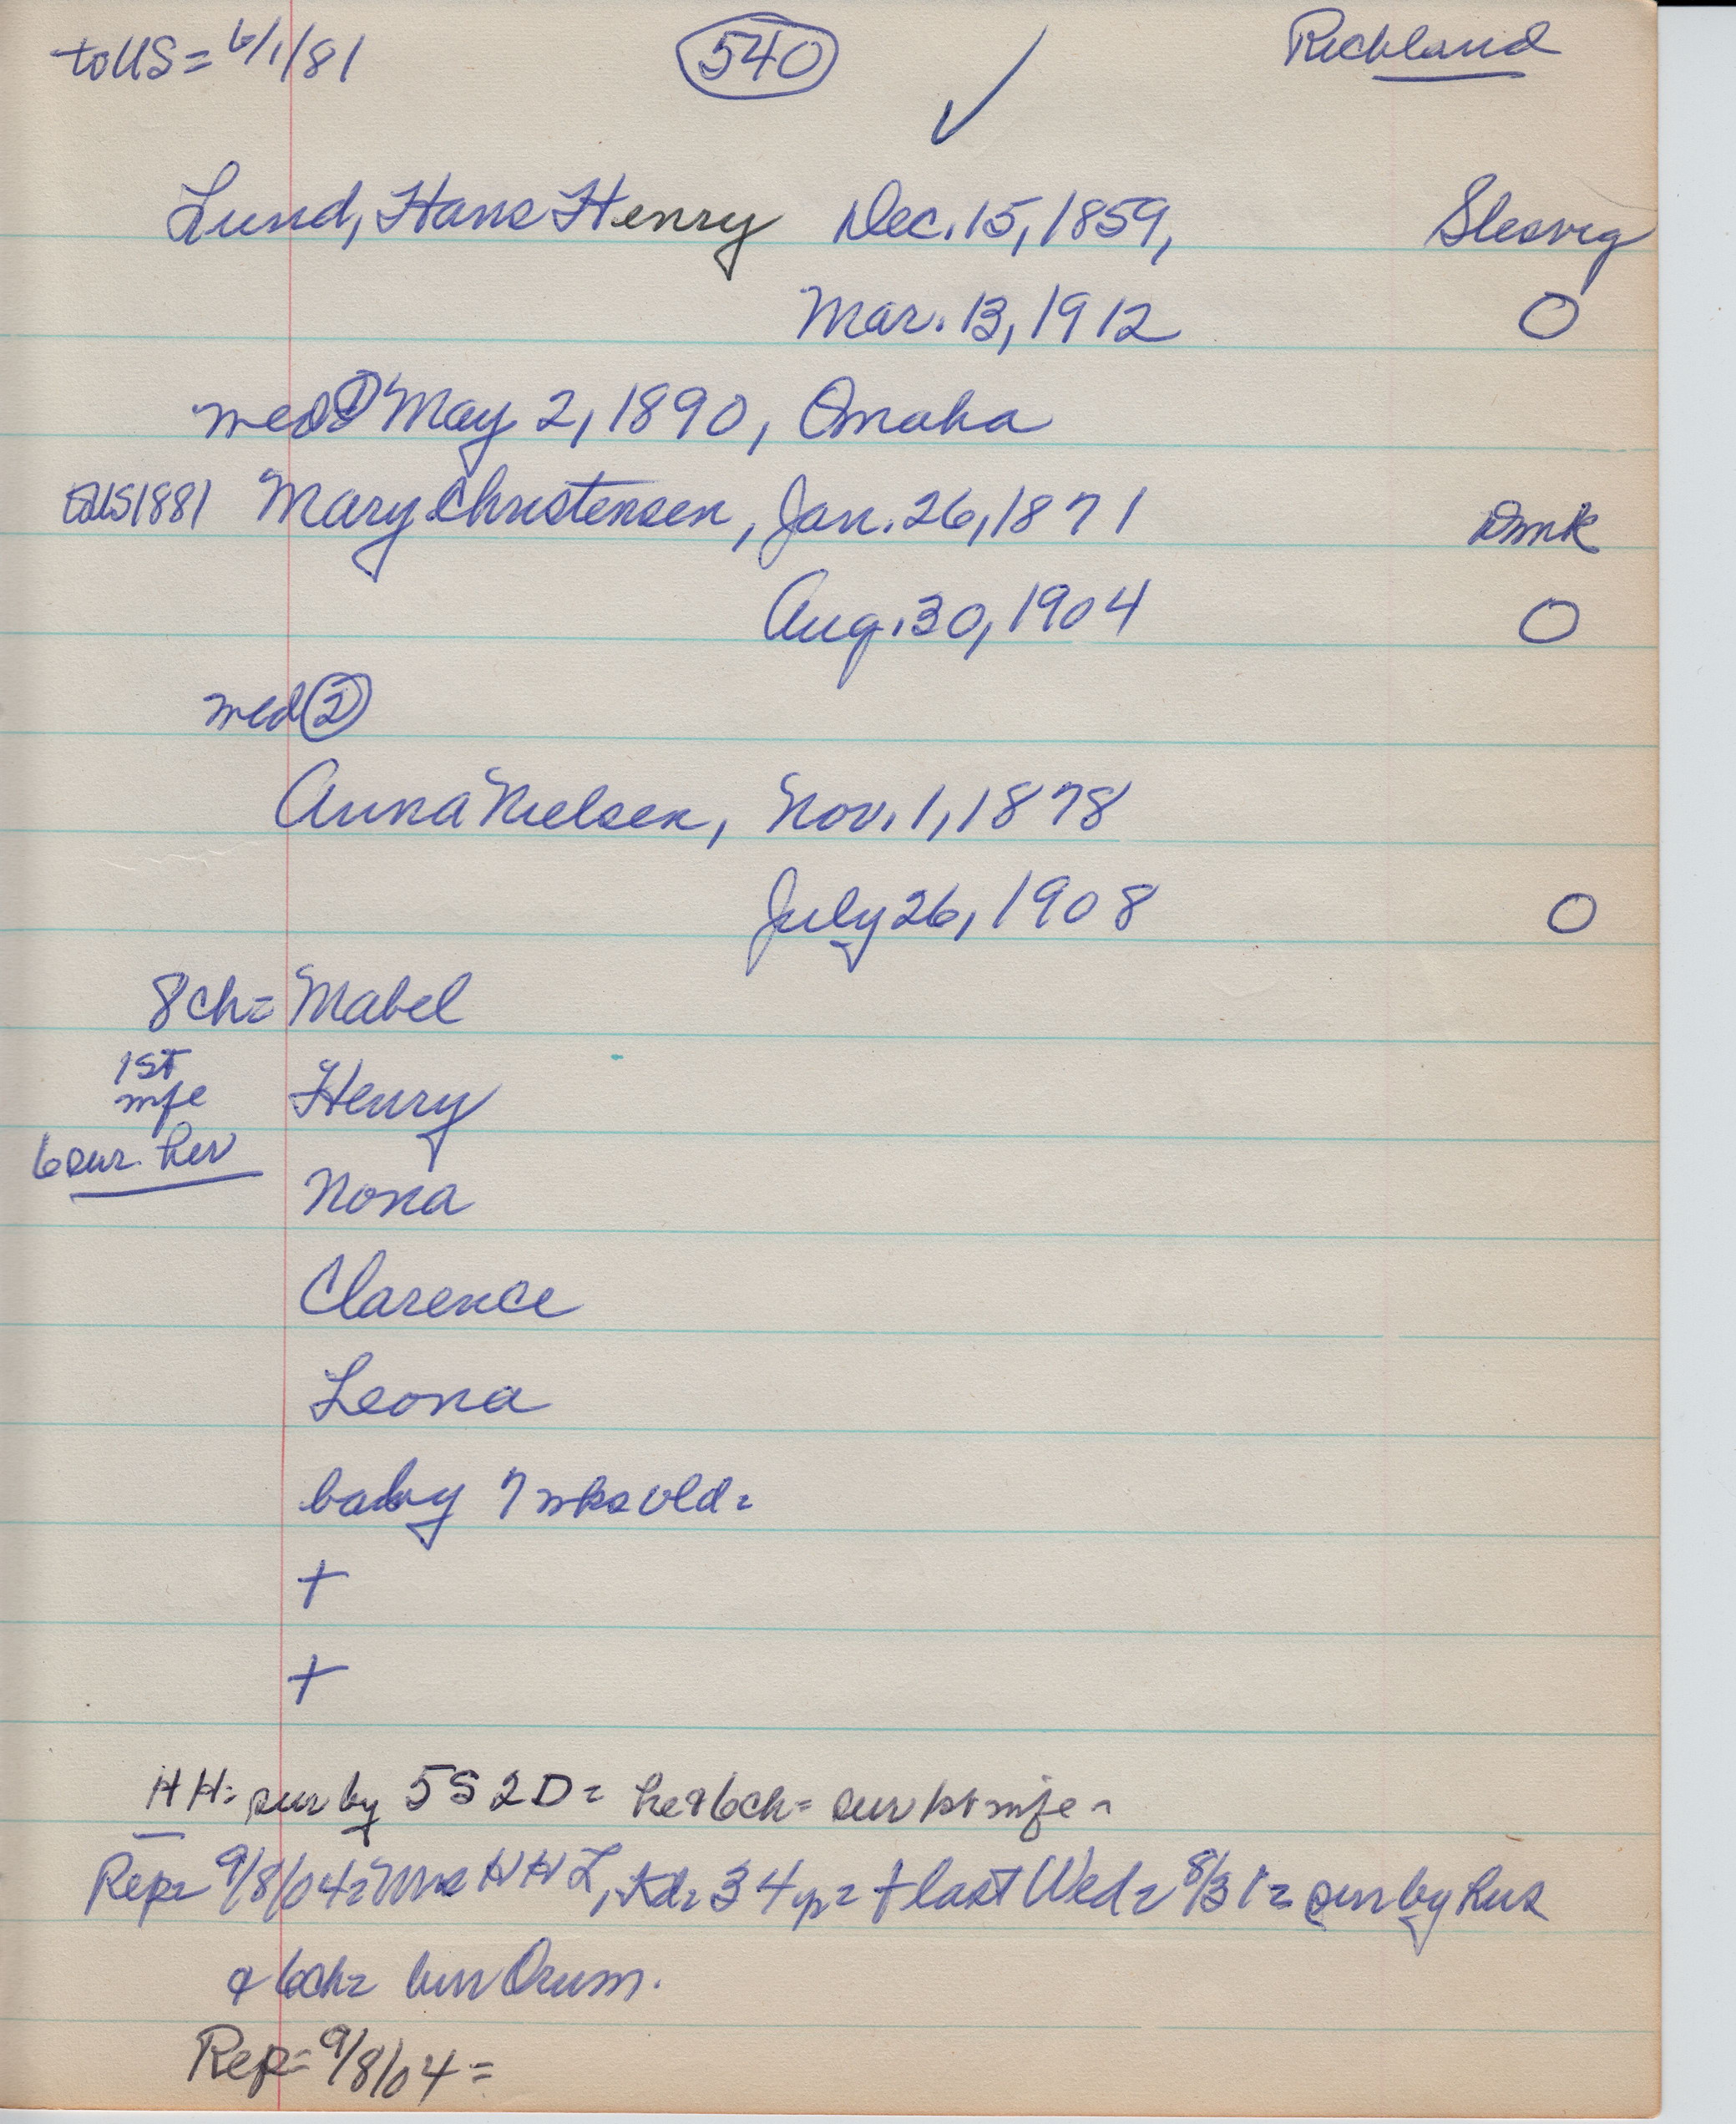 to US = 6/1/81 540 ✓ Richland
Lund, Hans Henry Dec. 15, 1859, Slesvig
Mar. 13, 1912 O
med ① May 2, 1890, Omaha
to US 1881 Mary Christensen, Jan. 26, 1871 Dmk
Aug. 30, 1904 O
med ②
Anna Nielsen, Nov. 1, 1878
July 26, 1908 O
8 ch = Mabel
1st
wife Henry
6 sur. her
Nona
Clarence
Leona
baby 7 wks old =
+
+
HH = sur by 5 S 2 D = he & 6 ch = sur 1st wife =
Rep = 9/8/04 = Mrs H H L, 34 y = + last Wed = 8/31 = sur by hus
& 6 ch = bur Orum.
Rep = 9/8/04 =